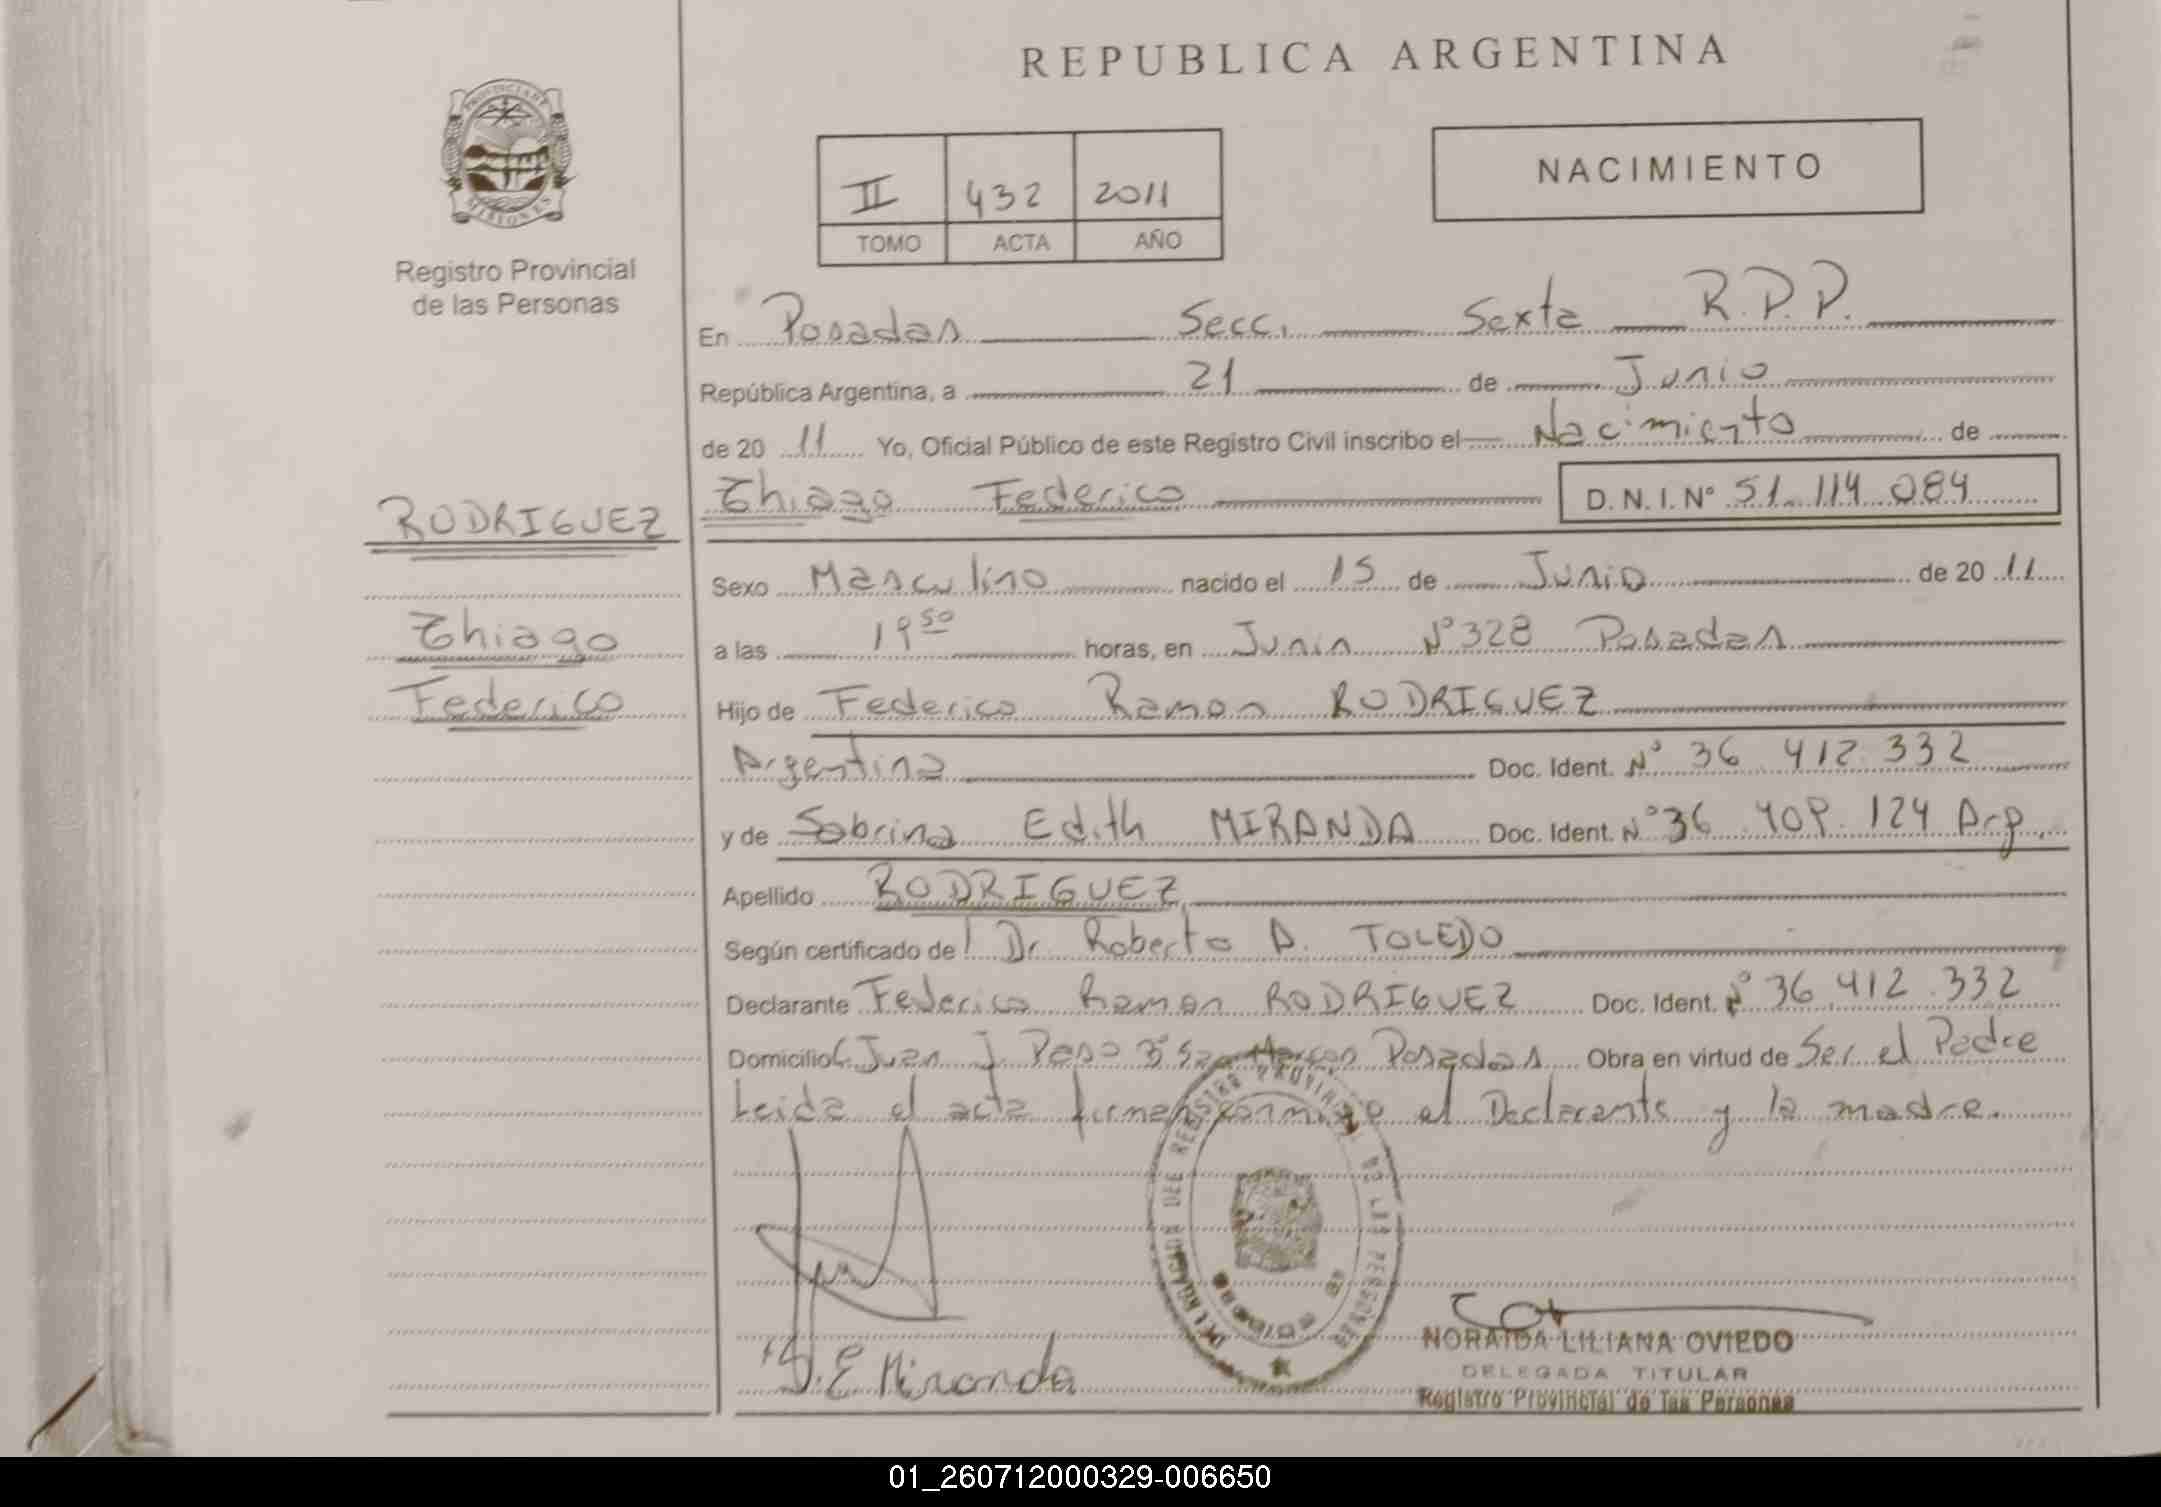 REPUBLICA ARGENTINA
PROVINCIA DE MISIONES
Registro Provincial
de las Personas
II 432 2011
TOMO ACTA AÑO
NACIMIENTO
En Posadas Secc. Sexta R.P.P.
República Argentina, a 21 de Junio
de 20 11 Yo, Oficial Público de este Registro Civil inscribo el Nacimiento de
Thiago Federico D.N.I.N° 51.114.084
RODRIGUEZ
Thiago
Federico
Sexo Masculino nacido el 15 de Junio de 20 11
a las 19 50 horas, en Junin N°328 Posadas
Hijo de Federico Ramon RODRIGUEZ
Argentina Doc. Ident. N° 36.412.332
y de Sabrina Edith MIRANDA Doc. Ident. N° 36 409.124 Arg.
Apellido RODRIGUEZ
Según certificado de Dr. Roberto A. TOLEDO
Declarante Federico Ramon RODRIGUEZ Doc. Ident. N° 36.412.332
Domicilio Juan J. Paso Posadas Obra en virtud de Ser el Padre
Leida el acta firman conmigo el Declarante y la madre.
DELEGACION DEL REGISTRO PROVINCIAL DE LAS PERSONAS
S.E Miranda
NORAIDA LILIANA OVIEDO
DELEGADA TITULAR
Registro Provincial de las Personas
01_260712000329-006650